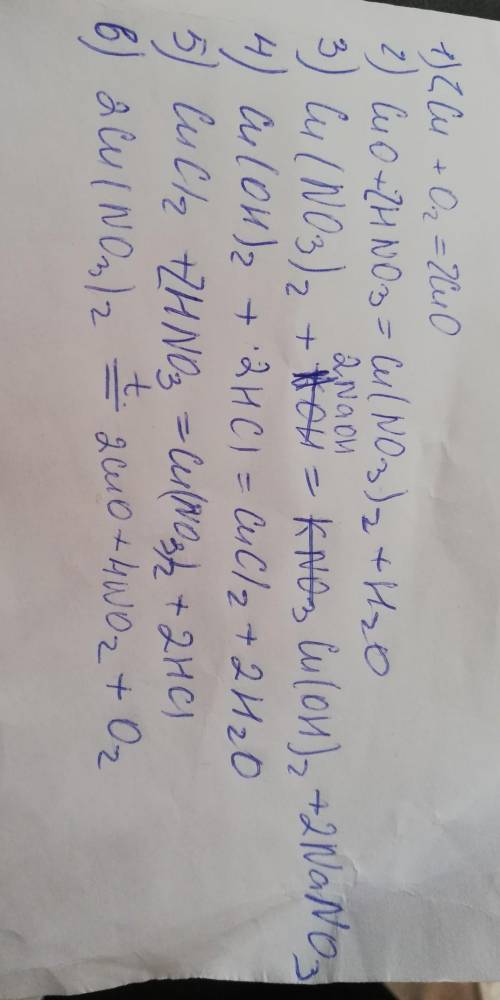 1) 2Cu + O2 = 2CuO
2) CuO + 2HNO3 = Cu(NO3)2 + H2O
2NaOH
3) Cu(NO3)2 + KOH = KNO3 Cu(OH)2 + 2NaNO3
4) Cu(OH)2 + 2HCl = CuCl2 + 2H2O
5) CuCl2 + 2HNO3 = Cu(NO3)2 + 2HCl
t
6) 2Cu(NO3)2 = 2CuO + 4NO2 + O2